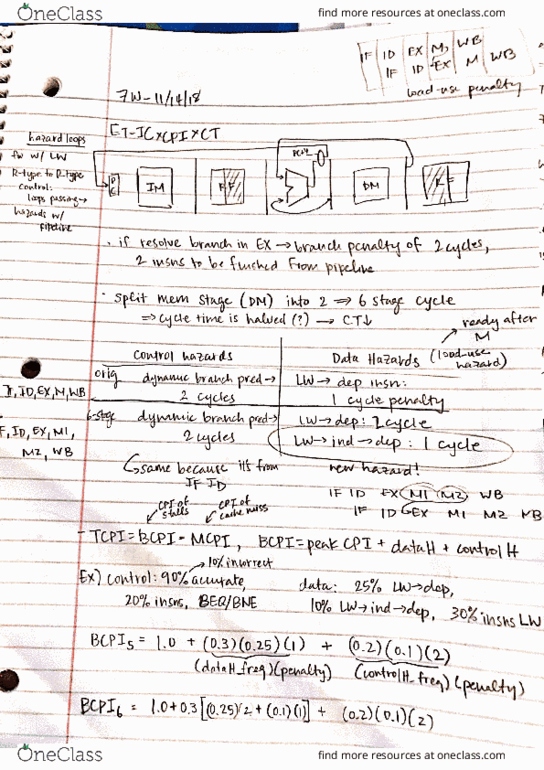 OneClass
find more resources at oneclass.com
IF ID EX M WB
IF ID EX M WB
load-use penalty
7W-11/14/18
ET=ICxCPIxCT
hazard loops
fw w/ LW
R-type to R-type
control:
loops passing→
hazards w/
pipeline
PC
IM
RF
PC+4
DM
RF
· if resolve branch in EX → branch penalty of 2 cycles,
2 insns to be flushed from pipeline
· split mem stage (DM) into 2 ⇒ 6 stage cycle
⇒ cycle time is halved (?) → CT↓
ready after
M
control hazards
Data Hazards (load-use
hazard)
orig
dynamic branch pred→
2 cycles
LW → dep insn:
1 cycle penalty
IF, ID, EX, M, WB
6-stage
dynamic branch pred→
2 cycles
LW → dep: 2 cycle
LW → ind → dep: 1 cycle
IF, ID, EX, M1,
M2, WB
↳ same because it's from
IF ID
new hazard!
IF ID EX M1 M2 WB
IF ID EX M1 M2 WB
CPI of
stalls
CPI of
cache miss
- TCPI = BCPI - MCPI, BCPI = peak CPI + dataH + controlH
→ 10% incorrect
Ex) control: 90% accurate,
20% insns, BEQ/BNE
data: 25% LW→dep,
10% LW→ind→dep, 30% insns LW
BCPI5 = 1.0 + (0.3)(0.25)(1) + (0.2)(0.1)(2)
(dataH_freq)(penalty) (controlH_freq)(penalty)
BCPI6 = 1.0+0.3[(0.25)2 + (0.1)(1)] + (0.2)(0.1)(2)
OneClass
find more resources at oneclass.com